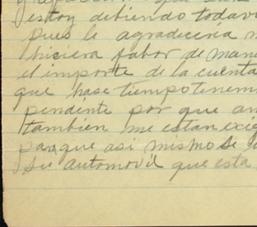 estoy debiendo todav
pues le agradeceria m
hiciera fabor de man
el importe de la cuenta
que hase tiempo tenem
pendiente por que an
tambien me estan exi
para que asi mismo se
su automovil que esta